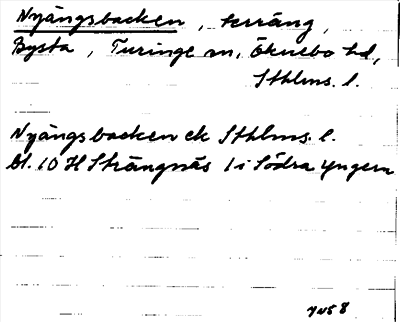 Nyängsbacken, terräng,
Bysta, Turinge sn, Öknebo hd,
Sthlms. l.
Nyängsbacken ek Sthlms. l.
bl. 10 H Strängnäs 1i Södra Yngern